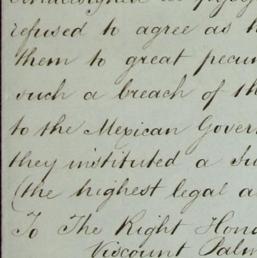 refused to agree as
them to great
such a breach of
to the Mexican
they instituted a
(the highest legal a
To The Right
Viscount